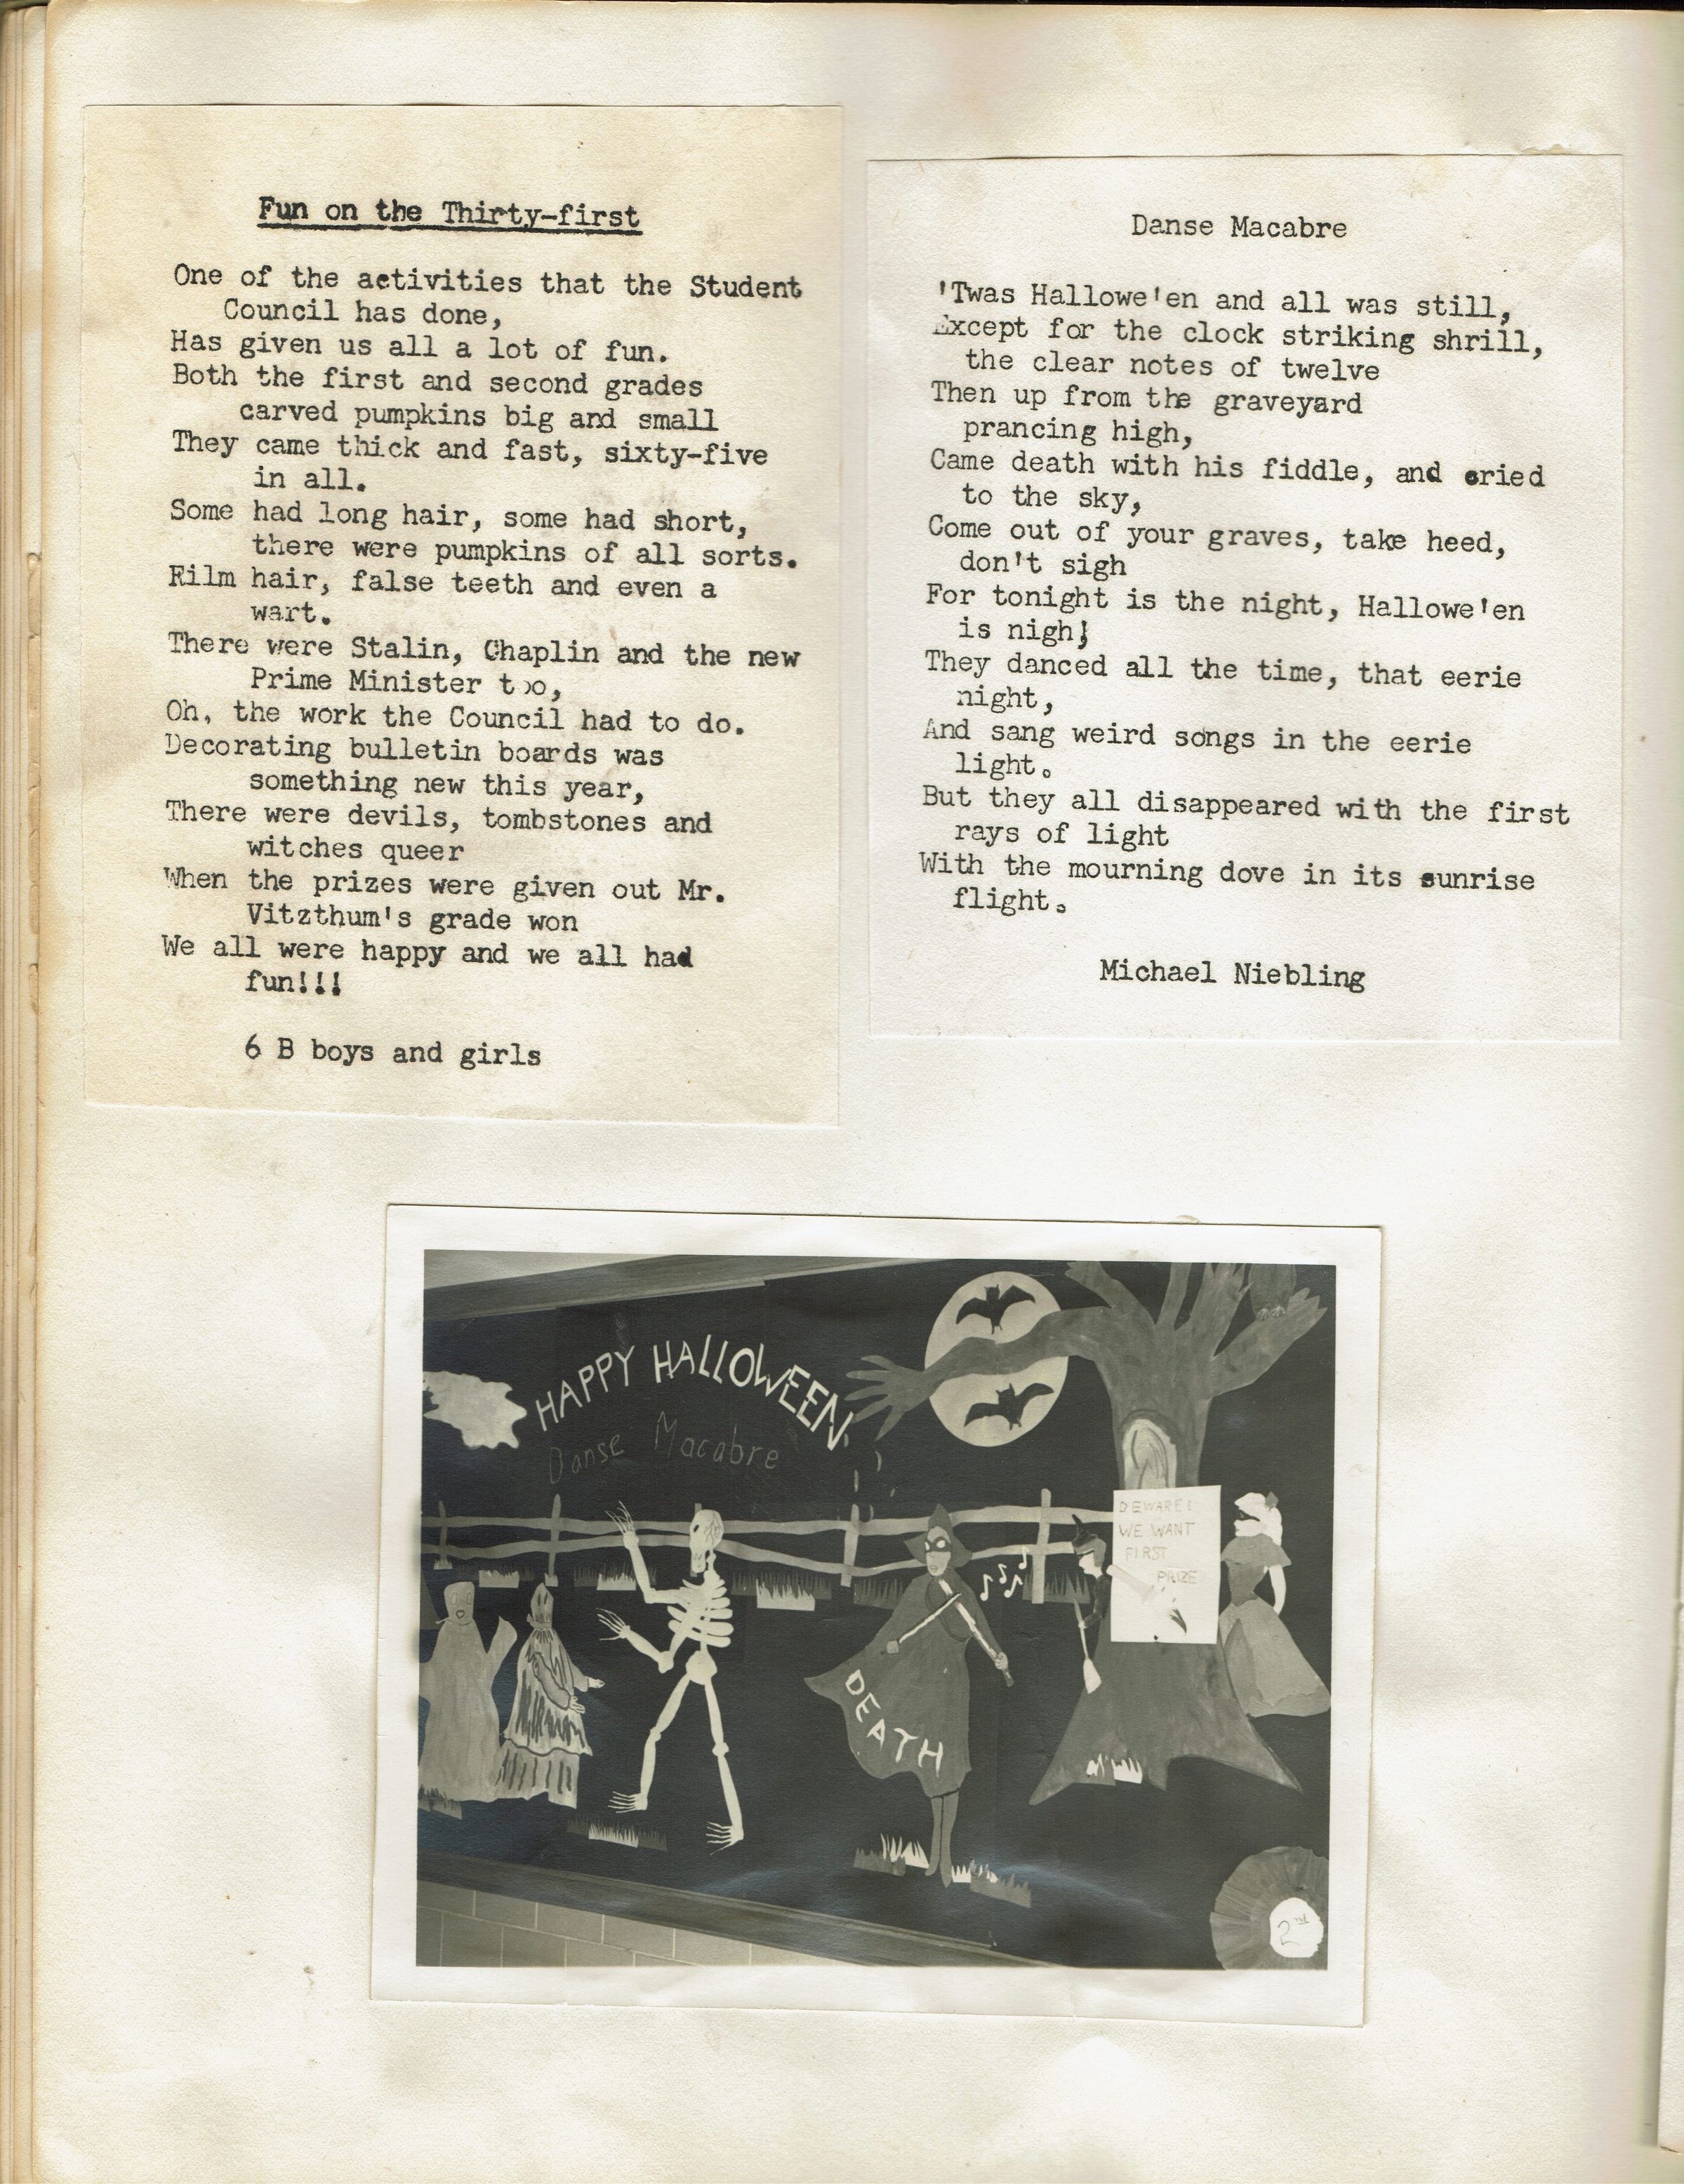 Fun on the Thirty-first
One of the activities that the Student
Council has done,
Has given us all a lot of fun.
Both the first and second grades
carved pumpkins big and small
They came thick and fast, sixty-five
in all.
Some had long hair, some had short,
there were pumpkins of all sorts.
Film hair, false teeth and even a
wart.
There were Stalin, Chaplin and the new
Prime Minister too,
Oh, the work the Council had to do.
Decorating bulletin boards was
something new this year,
There were devils, tombstones and
witches queer
When the prizes were given out Mr.
Vitzthum's grade won
We all were happy and we all had
fun!!!
6 B boys and girls
Danse Macabre
'Twas Hallowe'en and all was still,
Except for the clock striking shrill,
the clear notes of twelve
Then up from the graveyard
prancing high,
Came death with his fiddle, and cried
to the sky,
Come out of your graves, take heed,
don't sigh
For tonight is the night, Hallowe'en
is nigh!
They danced all the time, that eerie
night,
And sang weird songs in the eerie
light.
But they all disappeared with the first
rays of light
With the mourning dove in its sunrise
flight.
Michael Niebling
HAPPY HALLOWEEN
Danse Macabre
BEWARE!
WE WANT
FIRST
PRIZE
DEATH
2nd